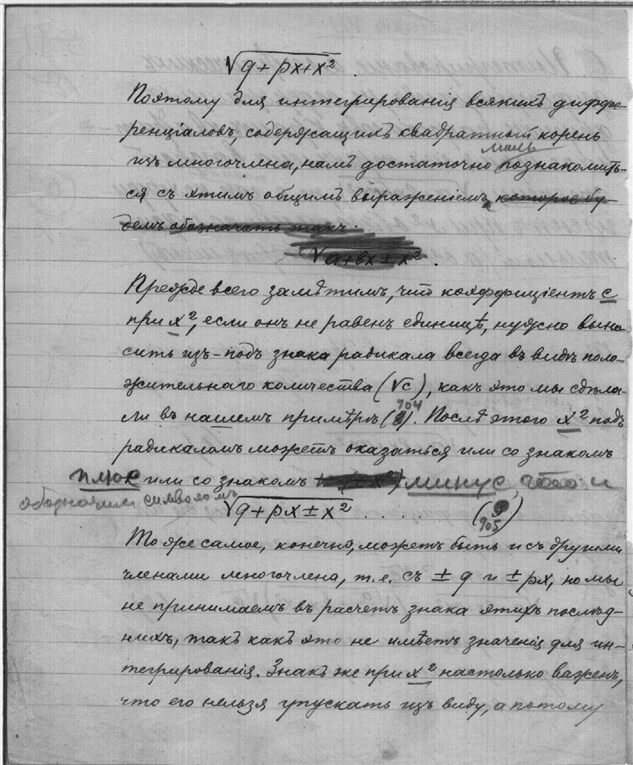 √q+px+x².
Поэтому для интегрированія всякихъ диффе-
ренціаловъ, содержащихъ квадратный корень
изъ многочлена, намъ достаточно познакомить-
ся съ этимъ общимъ выраженіемъ, которое бу-
демъ обозначать такъ.
√a+bx±x².
Прежде всего замѣтимъ, что коэффиціентъ c
при x², если онъ не равенъ единицѣ, нужно выно-
сить изъ-подъ знака радикала всегда въ видѣ поло-
жительнаго количества (√c), какъ это мы сдѣла-
ли въ нашемъ примѣрѣ (704). Послѣ этого x² подъ
радикаломъ можетъ оказаться или со знакомъ
плюс или со знакомъ минус, что и
обозначим символомъ
√q+px±x² . . . (705)
То же самое, конечно, можетъ быть и съ другими
членами многочлена, т.е. съ ±q и ±px, но мы
не принимаемъ въ расчетъ знака этихъ послѣд-
нихъ, такъ какъ это не имѣетъ значенія для ин-
тегрированія. Знакъ же при x² настолько важенъ,
что его нельзя упускать изъ виду, а потому